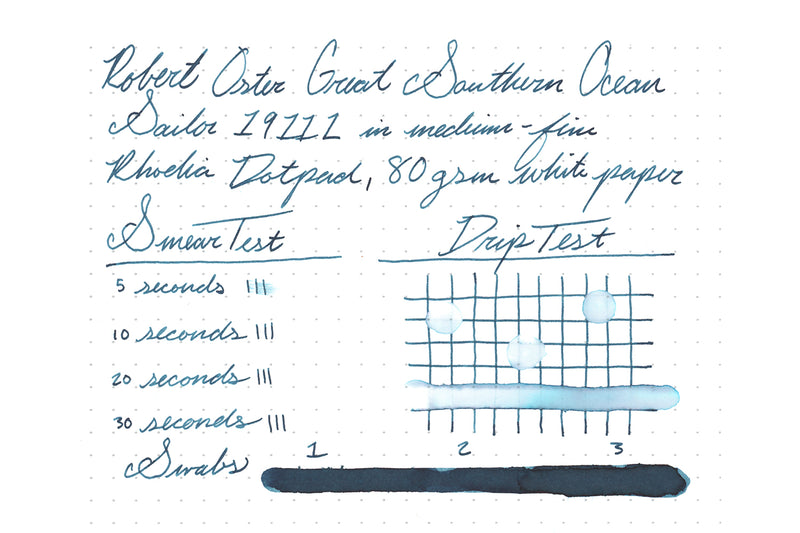 Robert Oster Great Southern Ocean
Sailor 1911L in medium-fine
Rhodia Dotpad, 80 gsm white paper
Smear Test
Drip Test
5 seconds
10 seconds
20 seconds
30 seconds
Swabs
1 2 3